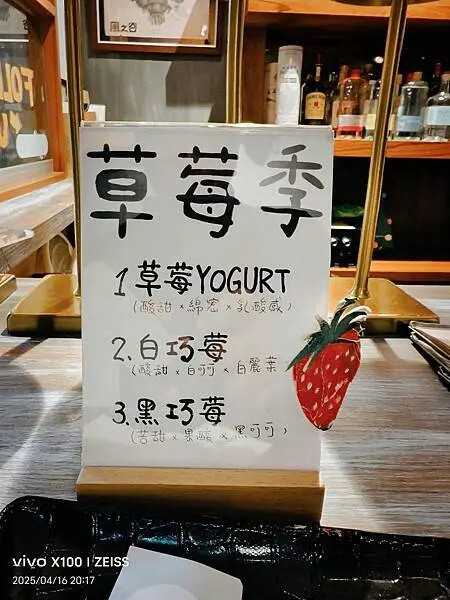 風之谷
草莓季
1 草莓YOGURT
(酸甜 x 綿密 x 乳酸感)
2. 白巧莓
(酸甜 x 白可可 x 白麗菜
3. 黑巧莓
(苦甜 x 果酸 x 黑可可)
vivo X100 | ZEISS
2025/04/16 20:17